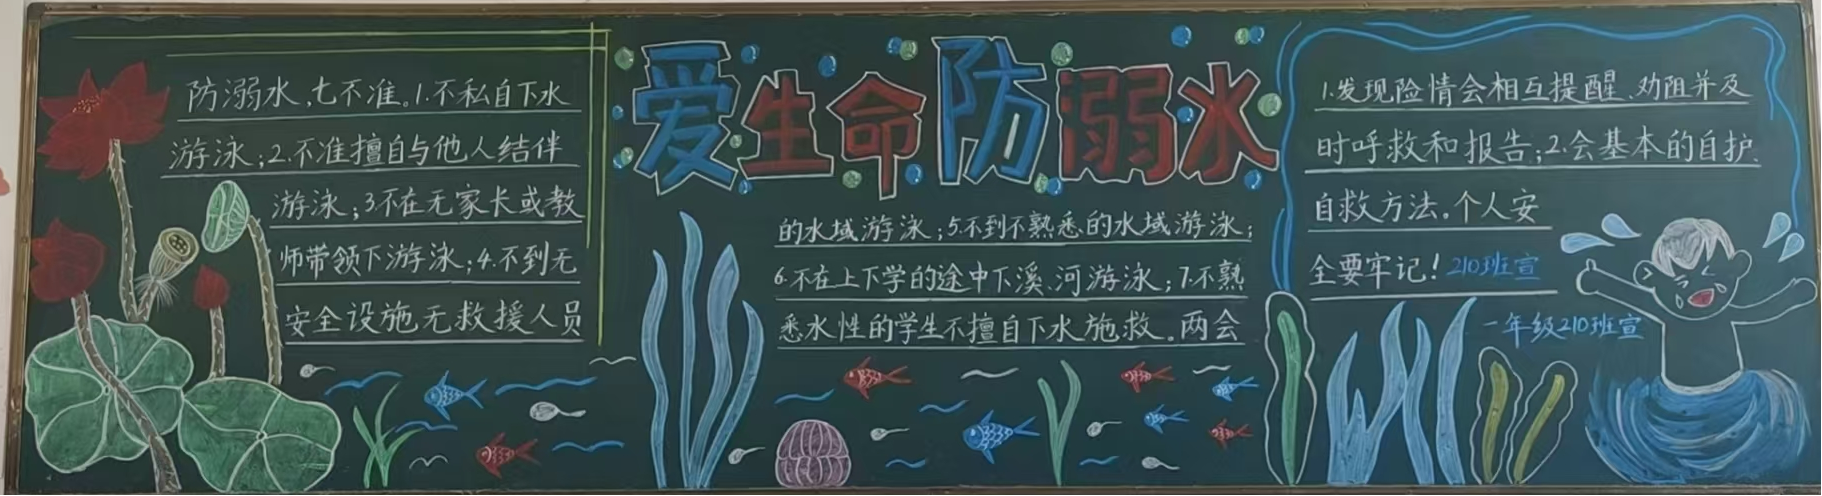 爱生命防溺水
防溺水,七不准。1.不私自下水
游泳;2.不准擅自与他人结伴
游泳;3不在无家长或教
师带领下游泳;4.不到无
安全设施无救援人员
的水域游泳;5.不到不熟悉的水域游泳;
6.不在上下学的途中下溪、河游泳;7.不熟
悉水性的学生不擅自下水施救。两会
1.发现险情会相互提醒、劝阻并及
时呼救和报告;2.会基本的自护、
自救方法。个人安
全要牢记!210班宣
一年级210班宣